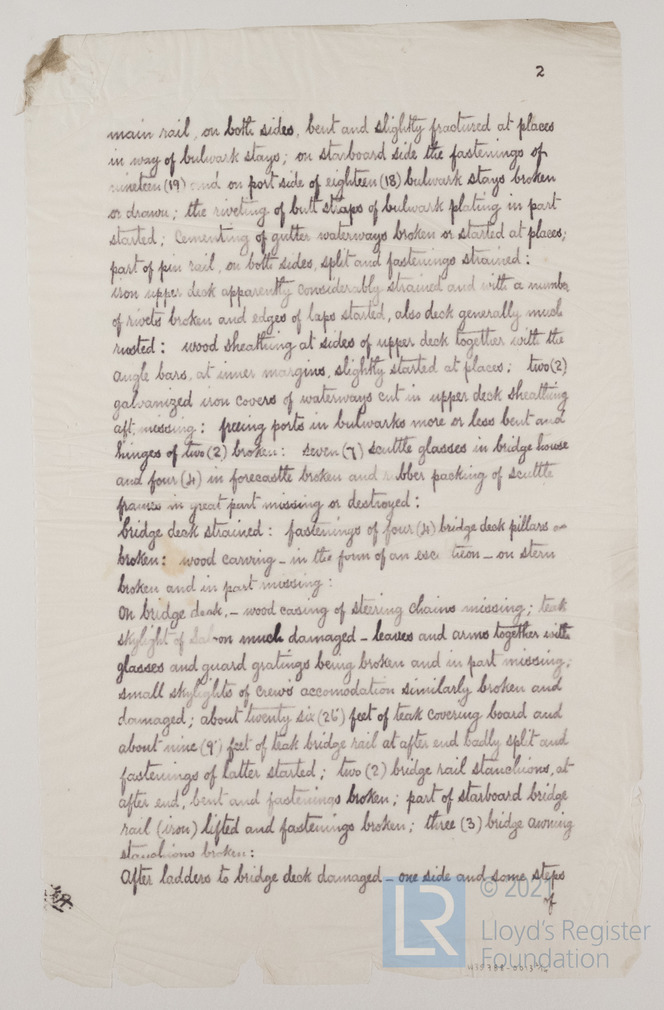 2
main rail, on both sides, bent and slightly fractured at places
in way of bulwark stays; on starboard side the fastenings of
nineteen (19) and on port side of eighteen (18) bulwark stays broken
or drawn; the riveting of butt straps of bulwark plating in part
started; cementing of gutter waterways broken or started at places;
part of pin rail, on both sides, split and fastenings strained:
iron upper deck apparently considerably strained and with a number
of rivets broken and edges of laps started, also deck generally much
rusted: wood sheathing at sides of upper deck together with the
angle bars, at inner margins, slightly started at places; two (2)
galvanized iron covers of waterways cut in upper deck sheathing
aft, missing: freeing ports in bulwarks more or less bent and
hinges of two (2) broken: seven (7) scuttle glasses in bridge house
and four (4) in forecastle broken and rubber packing of scuttle
frames in great part missing or destroyed:
bridge deck strained: fastenings of four (4) bridge deck pillars
broken: wood carving - in the form of an esc tcheon - on stern
broken and in part missing:
On bridge deck, - wood casing of steering chains missing; teak
skylight of Saloon much damaged - leaves and arms together with
glasses and guard gratings being broken and in part missing;
small skylights of crew's accomodation similarly broken and
damaged; about twenty six (26') feet of teak covering board and
about nine (9') feet of teak bridge rail at after end badly split and
fastenings of latter started; two (2) bridge rail stanchions, at
after end, bent and fastenings broken; part of starboard bridge
rail (iron) lifted and fastenings broken; three (3) bridge awning
stanchions broken:
After ladders to bridge deck damaged - one side and some steps
of
LR
© 2021
Lloyd's Register
Foundation